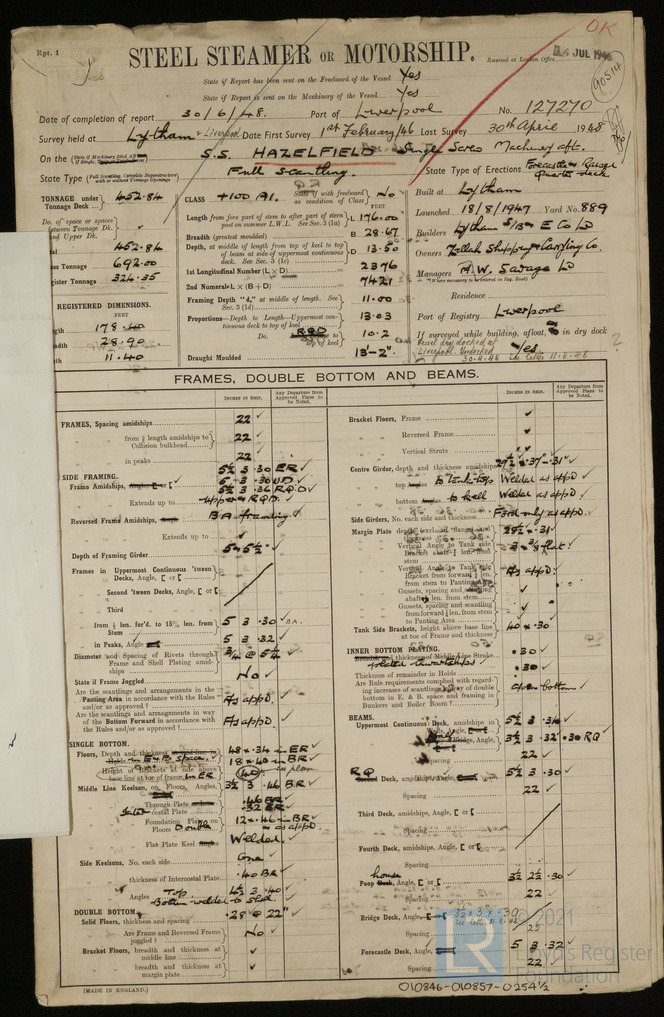 Rpt. 1
OK
STEEL STEAMER OR MOTORSHIP.
Received at London Office
JUL 1948
90514
State if Report has been sent on the Freeboard of the Vessel Yes
State if Report is sent on the Machinery of the Vessel Yes
Date of completion of report 30/6/48. Port of Liverpool No. 127270
Survey held at Lytham & Liverpool Date First Survey 1st February/46 Last Survey 30th April 1948
On the S.S. HAZELFIELD Single Screw Machinery aft.
State Type (Full Scantling, Complete Superstructure with or without Tonnage Openings) Full Scantling. State Type of Erections Forecastle Raised Quarter deck.
TONNAGE under Tonnage Deck 452.84
Do. of space or spaces between Tonnage Dk. and Upper Dk.
452.84
Tonnage 692.00
Register Tonnage 324.35
REGISTERED DIMENSIONS.
FEET
178.40
28.90
11.40
CLASS +100 A1. State if with freeboard as condition of Class No
FEET
Length from fore part of stem to after part of stern post on summer L.W.L. See Sec. 3 (1a) L 176.00
Breadth (greatest moulded) B 28.67
Depth, at middle of length from top of keel to top of beam at side of uppermost continuous deck. See Sec. 3 (1c) D 13.50
1st Longitudinal Number (L × D) 2376
2nd Numeral L × (B + D) 7421
Framing Depth "d," at middle of length. See Sec. 3 (1d) 11.00
Proportions—Depth to Length—Uppermost continuous deck to top of keel 13.03
Do. RQD to top of keel 10.2
Draught Moulded 13'-2"
Built at Lytham
Launched 18/8/1947 Yard No. 889
Builders Lytham S/B & E Co Ld
Owners Zillah Shipping & Carrying Co.
Managers A.W. Savage Ld
Residence
Port of Registry Liverpool
If surveyed while building, afloat, in dry dock Yes
Vessel dry docked at Liverpool. Undocked 30.4.48 See letter 11.6.48
FRAMES, DOUBLE BOTTOM AND BEAMS.
INCHES IN SHIP.
Any Departure from Approved Plans to be Noted.
FRAMES, Spacing amidships 22 ✓
" " from ⅕ length amidships to Collision bulkhead 22 ✓
" " in peaks 22 ✓
SIDE FRAMING.
5½ 3 .30 ER ✓
Frame Amidships, Angle 5 3 .30 UD ✓
5½ 3 .36 RQD ✓
" " Extends up to Upper & RQD. ✓
Reversed Frame Amidships, Angle BA framing ✓
" " Extends up to ✓
Depth of Framing Girder 5" & 5½" ✓
Frames in Uppermost Continuous 'tween Decks, Angle, [ or [
" Second 'tween Decks, Angle, [ or [
" Third
" from ⅕ len. for'd. to 15% len. from Stem 5 3 .30 ✓ BA.
" in Peaks, Angle 5 3 .32 ✓
Diameter and Spacing of Rivets through Frame and Shell Plating amidships ¾ @ 5¼ ✓
State if Frame Joggled No ✓
Are the scantlings and arrangements in the Panting Area in accordance with the Rules and/or as approved? As appd. ✓
Are the scantlings and arrangements in way of the Bottom Forward in accordance with the Rules and/or as approved? As appd. ✓
SINGLE BOTTOM.
Floors, Depth and thickness 48 × .34 in ER ✓
18 × .40 in BR ✓
Height of Brackets at side above base line at toe of frame in ER 40 as plan
Middle Line Keelson, on Floors, Angles 3½ 3 .46 BR ✓
" " Through Plate .46 BR ✓
Intercostal Plate .32 ER ✓
" " Foundation Plate on Floors Double 12 × .46 in BR ✓ as appd.
" " Flat Plate Keel Welded. ✓
Side Keelsons, No. each side One ✓
" " thickness of Intercostal Plate .40 BR ✓
" " Angles Top 4½ 3 .40 ✓
Bottom welded to shell ✓
DOUBLE BOTTOM.
Solid Floors, thickness and spacing .28 @ 22" ✓
" " Are Frame and Reversed Frame joggled? No ✓
Bracket Floors, breadth and thickness at middle line ✓
" " breadth and thickness at margin plate ✓
INCHES IN SHIP.
Any Departure from Approved Plans to be Noted.
Bracket Floors, Frame ✓
" " Reversed Frame ✓
" " Vertical Struts ✓
Centre Girder, depth and thickness amidships 27½ × .37 - .31" ✓
" " top Angles to Tank top Welded as appd ✓
" " bottom Angles to keel Welded as appd ✓
Side Girders, No. each side and thickness Ford only as appd. ✓
Margin Plate depth (excl. of flange) and thickness 28½ × .31 ✓
" " Vertical Angle to Tank side Bracket abaft ¼ len. from stem 3 × ⅜ flat ✓
" " Vertical Angle to Tank side Bracket from forward ¼ len. from stem to Panting Area As appd ✓
" " Gussets, spacing and scantling abaft ¼ len. from stem ✓
" " Gussets, spacing and scantling from forward ¼ len. from stem to Panting Area ✓
Tank Side Brackets, height above base line at toe of Frame and thickness 40 × .30 ✓
INNER BOTTOM PLATING.
thickness of Middle Line Strake .30 ✓
plated thwartships
Thickness of remainder in Holds .30 ✓
Are Rule requirements complied with regarding increases of scantlings in way of double bottom in E. & B. space and framing in Bunkers and Boiler Room? open bottom ✓
BEAMS.
Uppermost Continuous Deck, amidships 5½ 3 .34 ✓
3½ 3 .32 ✓ .30 RQ ✓
Spacing 22 ✓
RQ Deck, amidships, Angle 5½ 3 .30 ✓
Spacing 22 ✓
Third Deck, amidships, Angle, [ or [
Spacing
Fourth Deck, amidships, Angle, [ or [
Spacing
Poop house, Angle, [ or [ 3½ 2½ .30 ✓
Spacing 22 ✓
Bridge Deck, Angle, [ or [ 3½ × 3 × .30
Spacing 22
Forecastle Deck, Angle 5 3 .32 ✓
Spacing 22 ✓
(MADE IN ENGLAND.)
010846-010857-0254½
LR
© 2021
Lloyds Register
Foundation